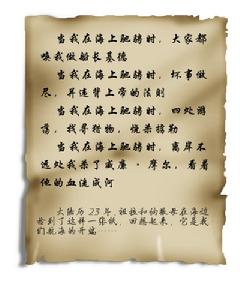 当我在海上驰骋时，大家都
唤我做船长基德
当我在海上驰骋时，坏事做
尽，并违背上帝的法则
当我在海上驰骋时，四处游
荡，找寻猎物，烧杀掳勒
当我在海上驰骋时，离岸不
远处我杀了威廉·摩尔，看着
他的血流成河
大陆历23年，祖拉和纳斯每在海边
捡到了这样一张纸，回想起来，它是我
们航海的开端……